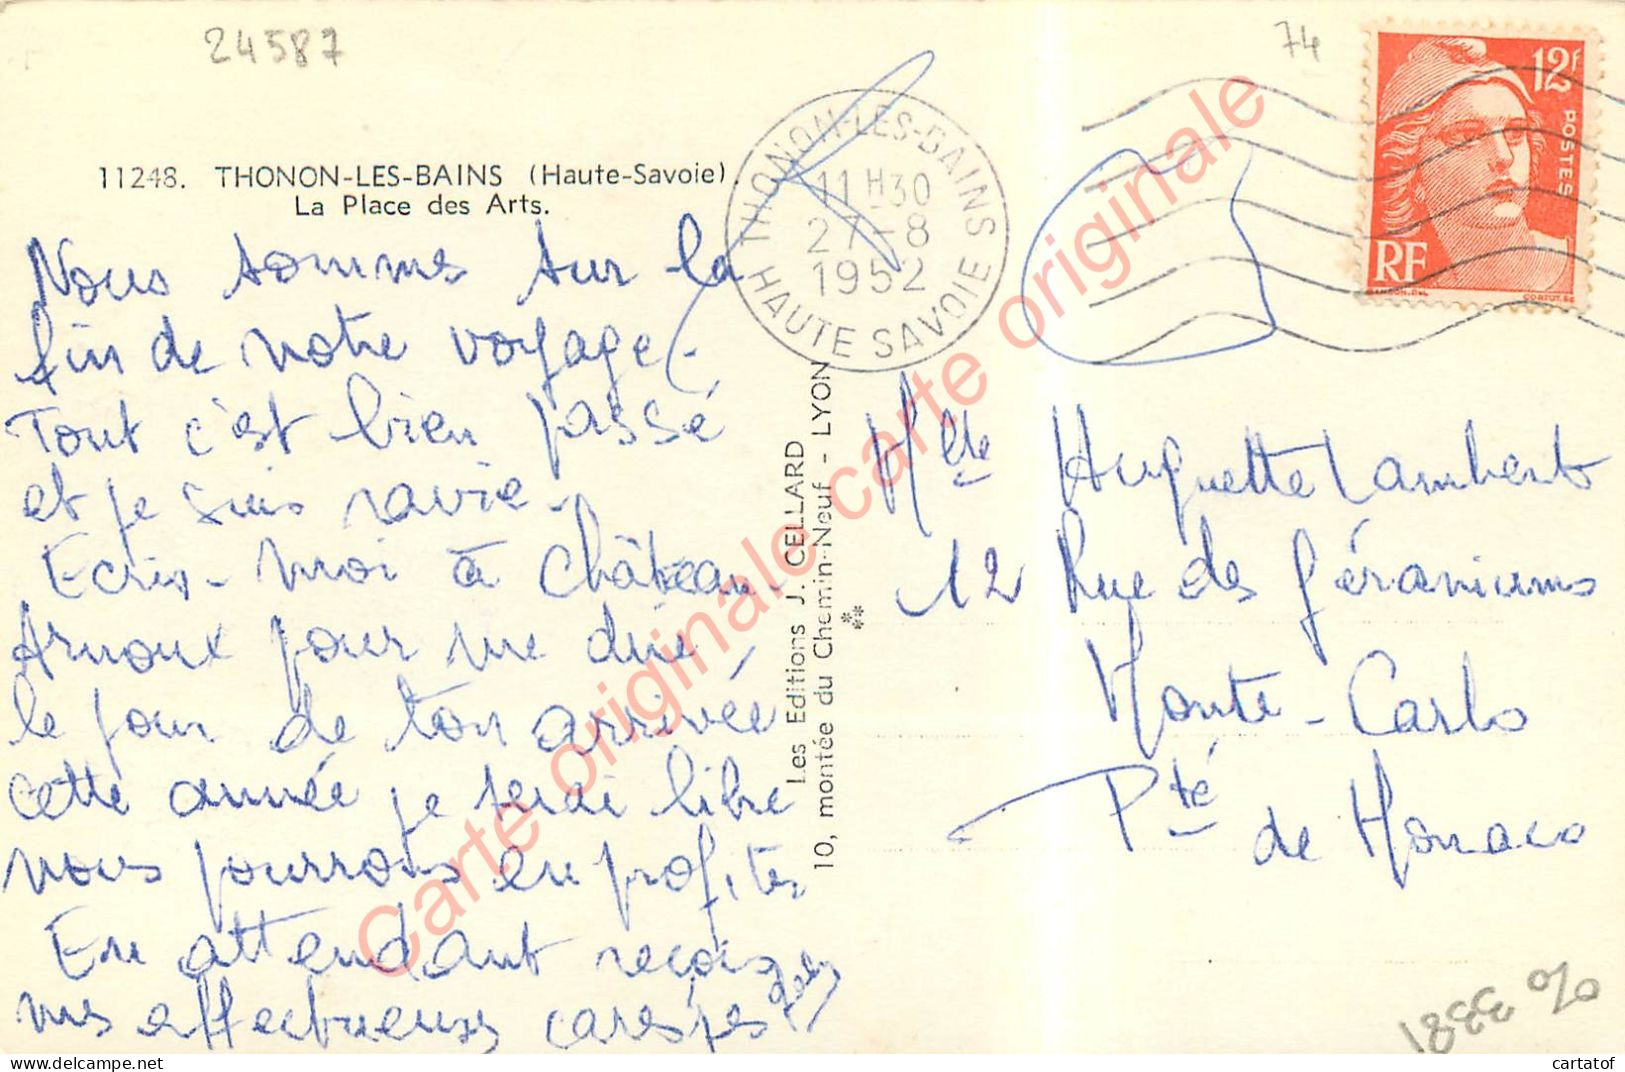 24587
74
11248. THONON-LES-BAINS (Haute-Savoie).
La Place des Arts.
THONON-LES-BAINS
11H30
27-8
1952
HAUTE SAVOIE
12F
POSTES
RF
GANDON.DEL
CORTOT.SC
Nous sommes sur la
fin de notre voyage.
Tout c'est bien passé
et je suis ravie.
Ecris-moi à Château
Arnoux pour me dire
le jour de ton arrivée
cette année je serai libre
nous pourrons en profiter
En attendant reçois
mes affectueuses caresses
Les Editions J. CELLARD
10, montée du Chemin-Neuf - LYON
Mlle Huguette Lambert
12 Rue des Géraniums
Monte-Carlo
Pté de Monaco
1833 %
Carte originale carte originale
cartatof